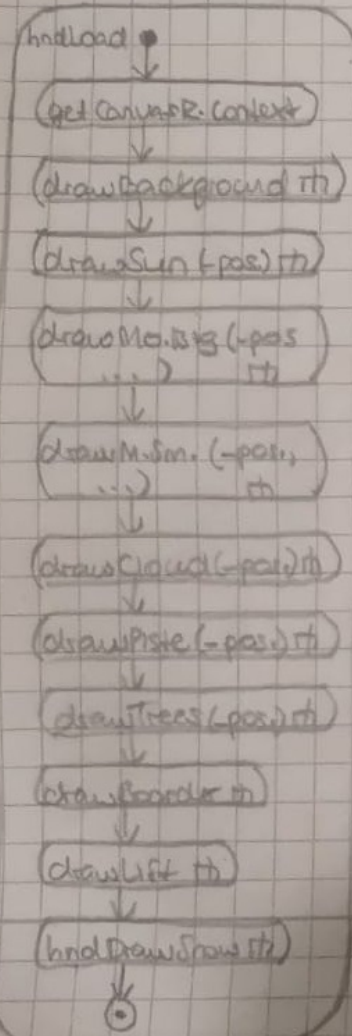 hndload
getCanvasR.Context
drawBackground
drawSun (-pos)
drawMo.Big (-pos
...)
drawM.Sm. (-pos,
...)
drawCloud (-pos)
drawPiste (-pos)
drawTrees (-pos)
drawBoarder
drawLift
hndDrawSnow